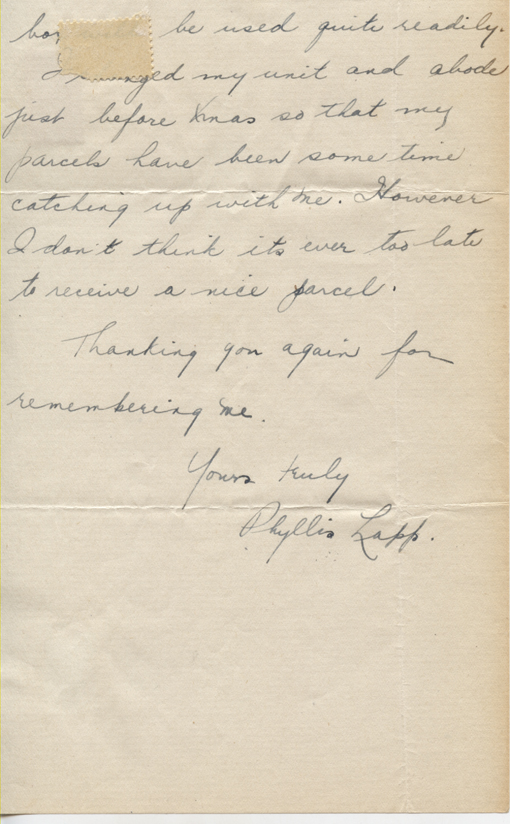 be used quite readily.
I changed my unit and abode
just before Xmas so that my
parcels have been some time
catching up with me. However
I don't think its ever too late
to receive a nice parcel.
Thanking you again for
remembering me.
Yours truly
Phyllis Lapp.